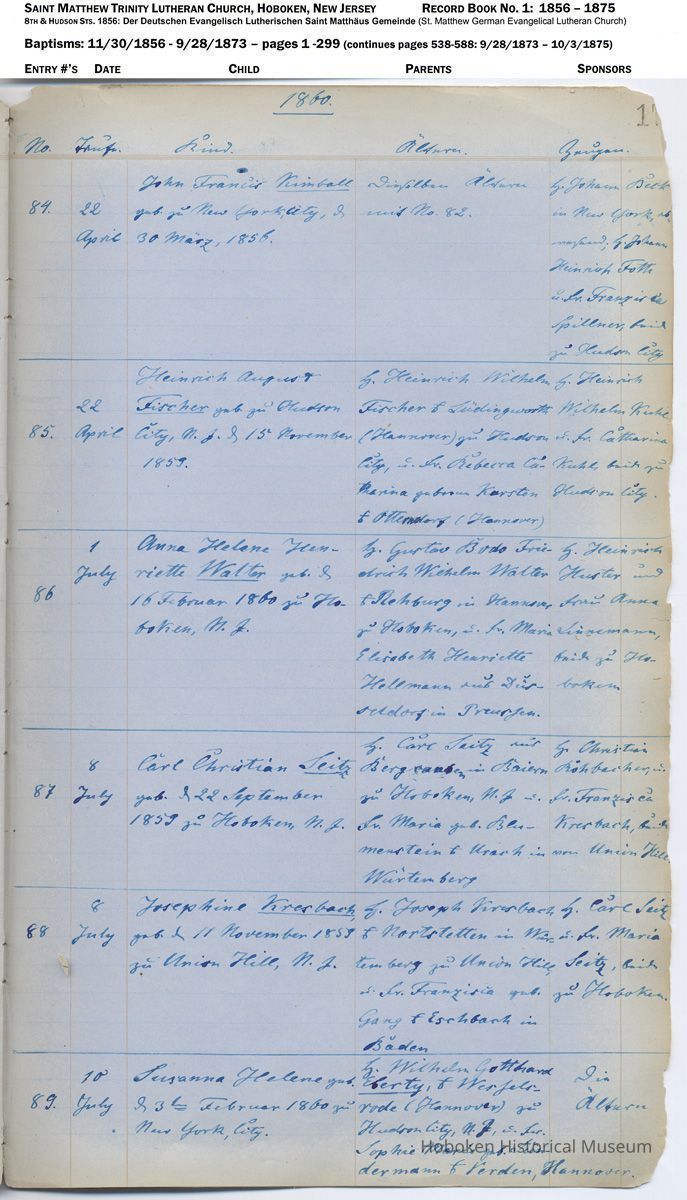 SAINT MATTHEW TRINITY LUTHERAN CHURCH, HOBOKEN, NEW JERSEY RECORD BOOK NO. 1: 1856 – 1875
8TH & HUDSON STS. 1856: Der Deutschen Evangelisch Lutherischen Saint Matthäus Gemeinde (St. Matthew German Evangelical Lutheran Church)
Baptisms: 11/30/1856 - 9/28/1873 – pages 1 -299 (continues pages 538-588: 9/28/1873 – 10/3/1875)
ENTRY #'S DATE CHILD PARENTS SPONSORS
1860.
No. Taufe. Kind. Ältern. Zeugen.
84.
22
April
John Francis Kimball
geb. zu New York, City, d.
30 März, 1856.
Dieselben Ältern
mit No. 82.
H. Johann Beck
in New York,
H. Johann
Heinrich Foth
u. Fr. Franziska
Spillner, beide
zu Hudson City
85.
22
April
Heinrich August
Fischer geb. zu Hudson
City, N. J. d. 15 November
1859.
H. Heinrich Wilhelm
Fischer t Lüdingworth
(Hannover) zu Hudson
City, u. Fr. Rebecca Ca-
tharina geboren Karsten
t Otterndorf (Hannover)
H. Heinrich
Wilhelm Kuhl
u. Fr. Catharina
Kuhl, beide zu
Hudson City.
86
1
July
Anna Helene Hen-
riette Walter geb. d.
16 Februar 1860 zu Ho-
boken, N. J.
H. Gustav Bodo Frie-
drich Wilhelm Walter
t Rehburg in Hannover,
zu Hoboken, u. Fr. Maria
Elisabeth Henriette
Hellmann aus Düs-
seldorf in Preussen.
H. Heinrich
Huster und
Frau Anna
Linnemann,
beide zu Ho-
boken
87
8
July
Carl Christian Seitz
geb. d. 22 September
1859 zu Hoboken, N. J.
H. Carl Seitz aus
Bergzabern in Baiern
zu Hoboken, N. J u.
Fr. Maria geb. Blu-
menstein t Urach in
Würtemberg
H. Christian
Rohrbacher, u.
Fr. Franzisca
Kresbach, beide
von Union Hill.
88
8
July
Josephine Kresbach
geb. d. 11 November 1859
zu Union Hill, N. J.
H. Joseph Kresbach
t Nortstetten in Wür-
temberg zu Union Hill,
u. Fr. Franzisca geb.
Gang t Eschbach in
Baden
H. Carl Seitz
u. Fr. Maria
Seitz, beide
zu Hoboken.
89.
10
July
Susanna Helene geb.
d. 3ten Februar 1860 zu
New York, City.
H. Wilhelm Gotthard
Eberty, t
(Hannover) zu
Hudson City, N. J, u. Fr.
Sophie
dermann t Verden, Hannover.
Die
Ältern
Hoboken Historical Museum